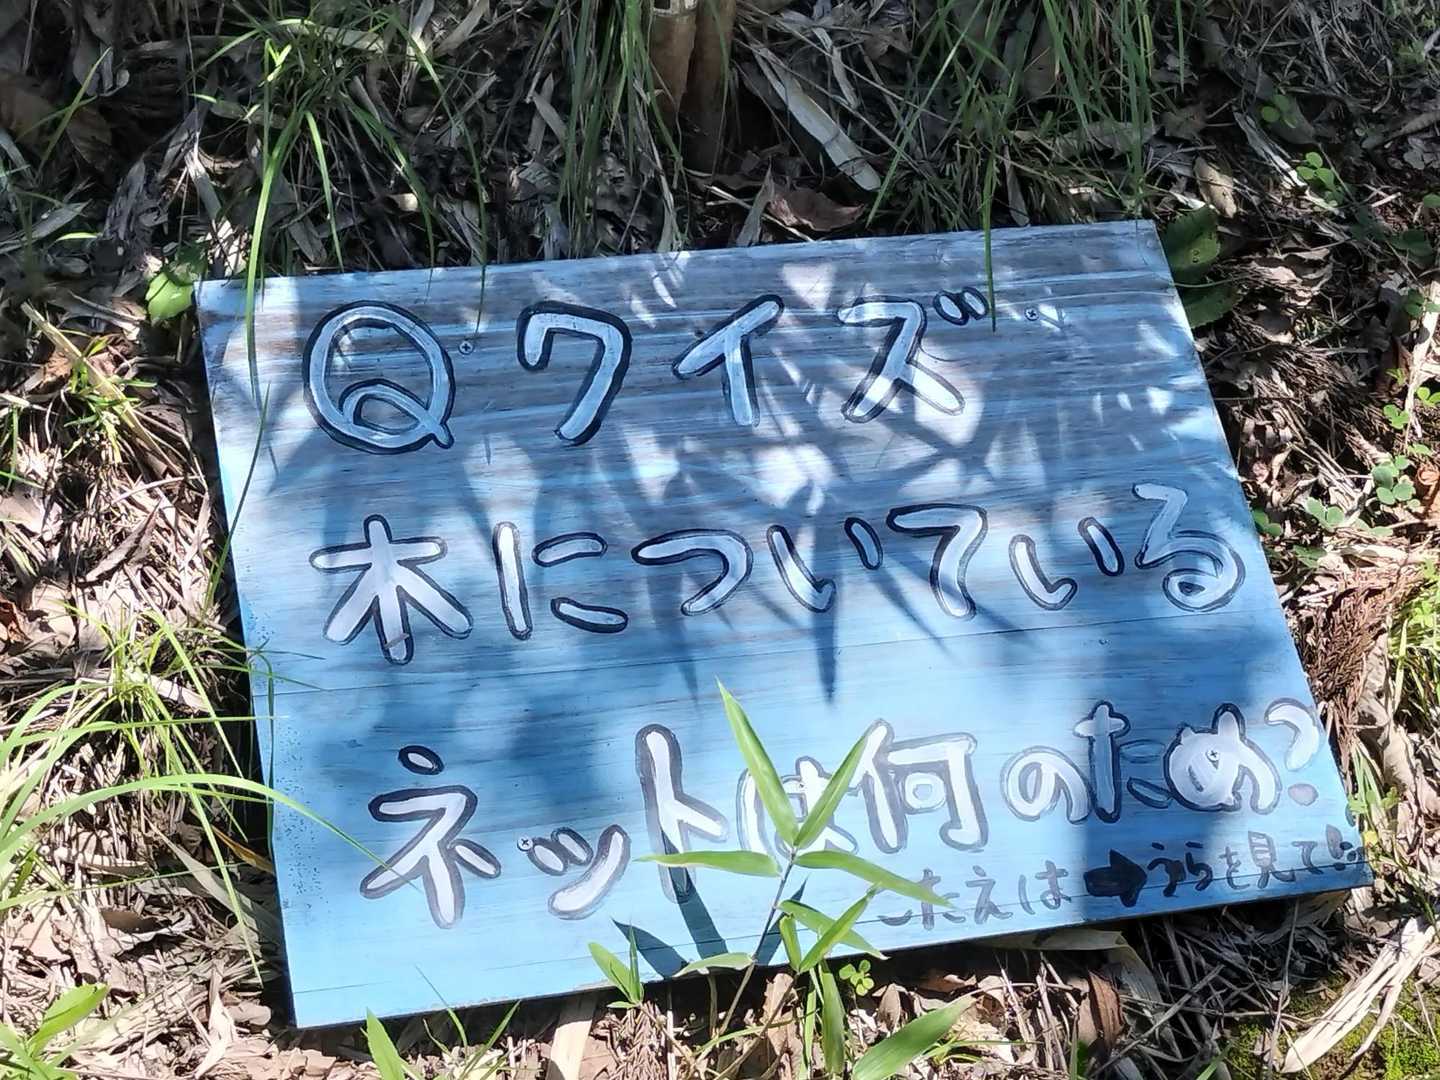 Qクイズ
木についている
ネットは何のため?
こたえは➡うらを見て!!